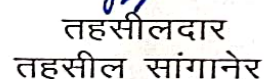 तहसीलदार
तहसील सांगानेर